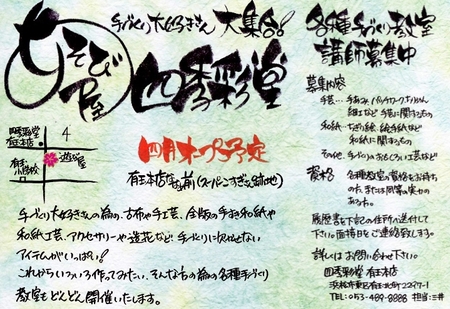 手づくり大好きさん大集合!
あそび屋
四季彩堂
四月オープン予定
有玉本店なな前(スーパーこすぎさん跡地)
四季彩堂
有玉本店
4
遊び屋
有玉
小学校
手づくり大好きさんの為の、古布や手工芸、全版の手すき和紙や
和紙工芸、アクセサリーや造花など手づくりに欠かせない
アイテムがいっぱい!!
これからいろいろ作ってみたい、そんな方の為の各種手づくり
教室もどんどん開催いたします。
各種手づくり教室
講師募集中
募集内容
手芸…手あみ、パッチワーク、ちりめん
細工など手芸に関するもの
和紙…ちぎり絵、絵手紙など
和紙に関するもの
その他…手づくりのおもしろい工芸など
資格 各種教室の資格をお持ち
の方、または同等の実力の
ある方。
履歴書を下記の住所へ送付して
下さい。面接日をご連絡致します。
詳しくはお問い合わせ下さい。
四季彩堂 有玉本店
浜松市東区有玉北町2297-1
TEL:053-489-8888 担当:三井